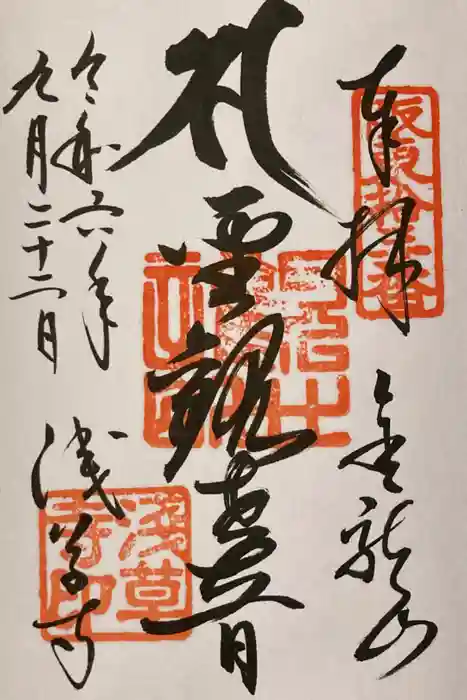 奉拝
坂東拾三番
金龍山
聖観世音
令和六年
九月二十二日
浅草寺
浅草寺印